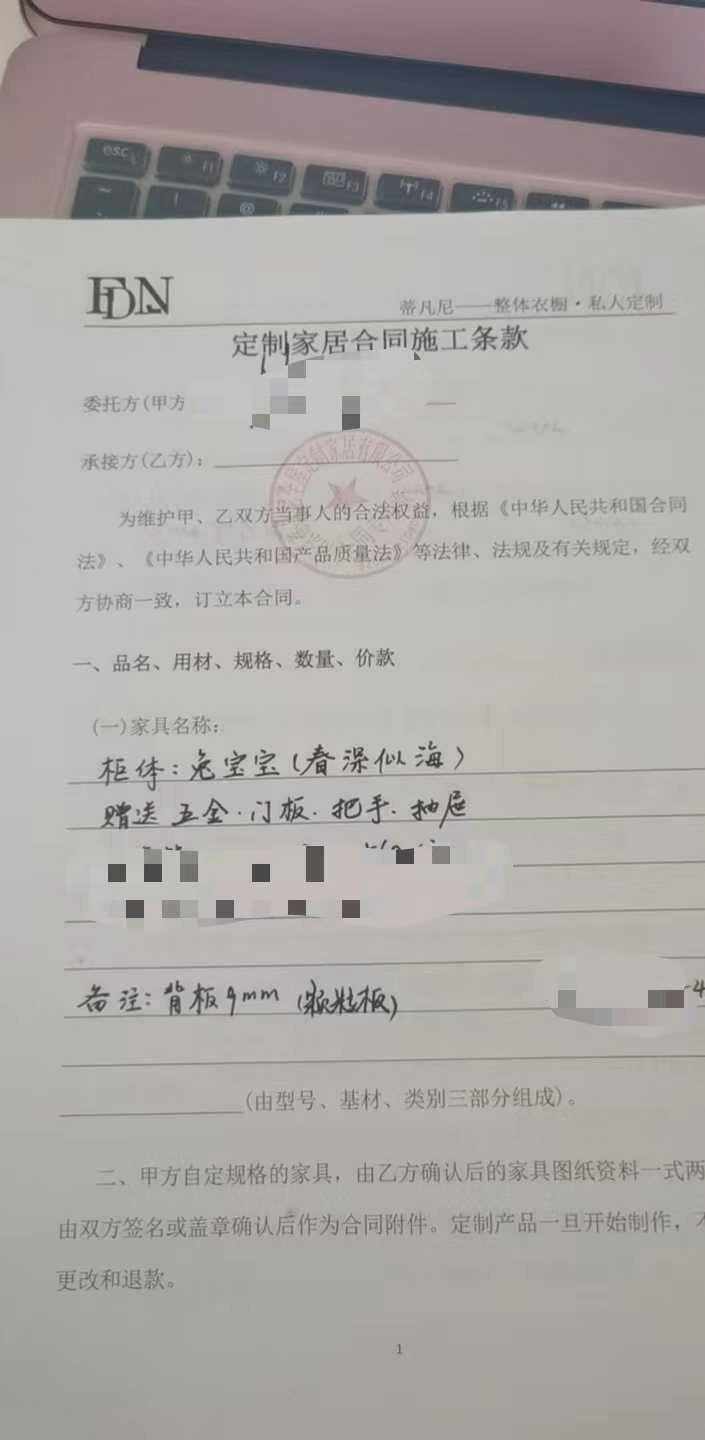 esc F1 F2 F3 F4 F5
~ ! @
FDN
蒂凡尼——整体衣橱·私人定制
定制家居合同施工条款
委托方(甲方
承接方(乙方):
全屋定制家居有限公司
为维护甲、乙双方当事人的合法权益，根据《中华人民共和国合同
法》、《中华人民共和国产品质量法》等法律、法规及有关规定，经双
方协商一致，订立本合同。
一、品名、用材、规格、数量、价款
(一)家具名称:
柜体：兔宝宝（春深似海）
赠送 五金·门板·把手·抽屉
备注：背板9mm（颗粒板）
(由型号、基材、类别三部分组成)。
二、甲方自定规格的家具，由乙方确认后的家具图纸资料一式两
由双方签名或盖章确认后作为合同附件。定制产品一旦开始制作，不
更改和退款。
1